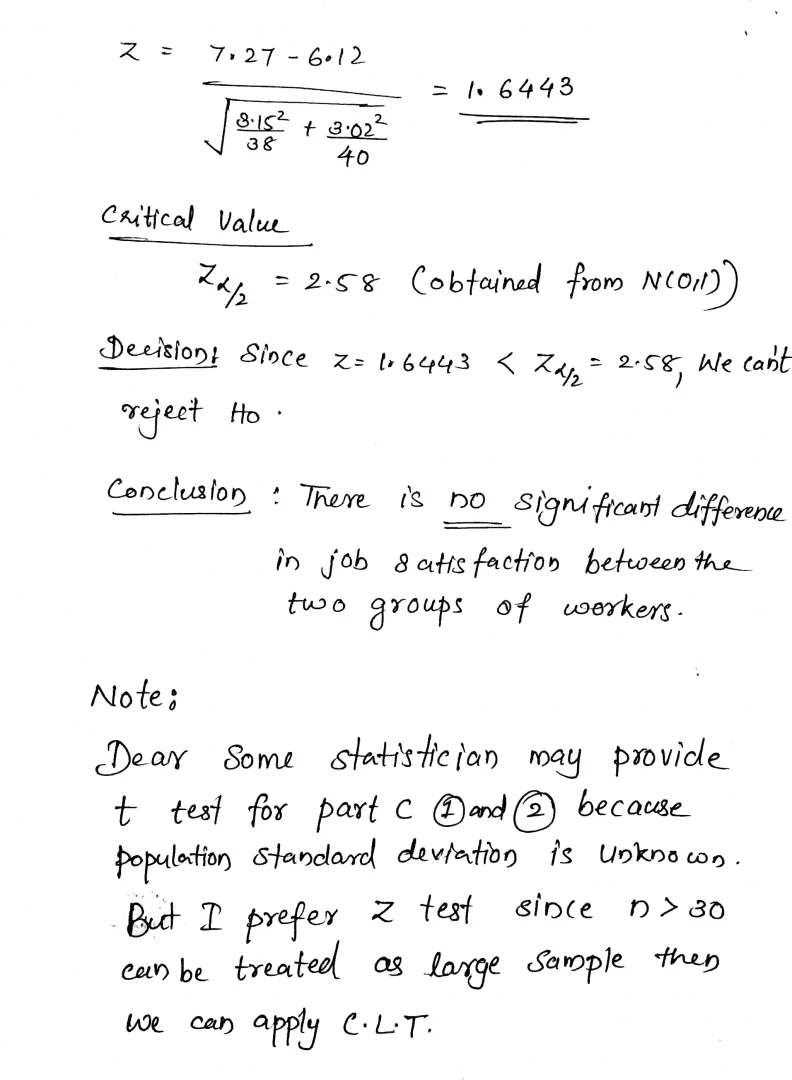 Z = 7.27 - 6.12 / √(3.15²/38 + 3.02²/40) = 1.6443
Critical Value
Zα/2 = 2.58 (obtained from N(0,1))
Decision: Since Z = 1.6443 < Zα/2 = 2.58, We can't
reject Ho.
Conclusion : There is no significant difference
in job satisfaction between the
two groups of workers.
Note:
Dear Some statistician may provide
t test for part C ① and ② because
population standard deviation is unknown.
But I prefer Z test since n > 30
can be treated as large sample then
we can apply C.L.T.